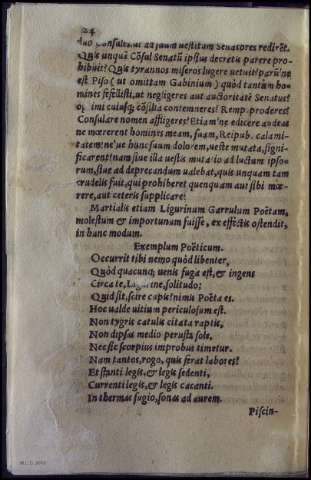 duo Consules, ut ad suum uestitum Senatores redirēt.
Quis unquā Cōsul Senatū ipsius decretis parere pro-
hibuit? Quis tyrannos miseros lugere uetuit? parū'ne
est Piso (ut omittam Gabinium) quòd tantum ho-
mines fefellisti, ut negligeres auctoritatē Senatus?
optimi cuiusq; cōsilia contemneres? Remp. proderes?
Consulare nomen affligeres? Etiam'ne edicere audeas
ne mœrerent homines meam, suam, Reipub. calami-
tatem: ne'ue hunc suum dolorem, ueste mutata, signi-
ficarent? nam siue illa uestis mutatio ad luctum ipso-
rum, siue ad deprecandum ualebat, quis unquam tam
crudelis fuit, qui prohiberet quenquam aut sibi mœ-
rere, aut ceteris supplicare?
Martialis etiam Ligurinum Garrulum Poëtam,
molestum & importunum fuisse, ex effectis ostendit,
in hunc modum.
Exemplum Poëticum.
Occurrit tibi nemo quòd libenter,
Quòd quacunq; uenis fuga est, & ingens
Circa te, Ligurine, solitudo;
Quid sit, scire cupis? nimis Poëta es.
Hoc ualde uitium periculosum est.
Non tygris catulis citata raptis,
Non dipsas medio perusta sole,
Nec sic scorpius improbus timetur.
Nam tantos, rogo, quis ferat labores?
Et stanti legis, & legis sedenti,
Currenti legis, & legis cacanti.
In thermas fugio, sonas ad aurem.
Piscin-